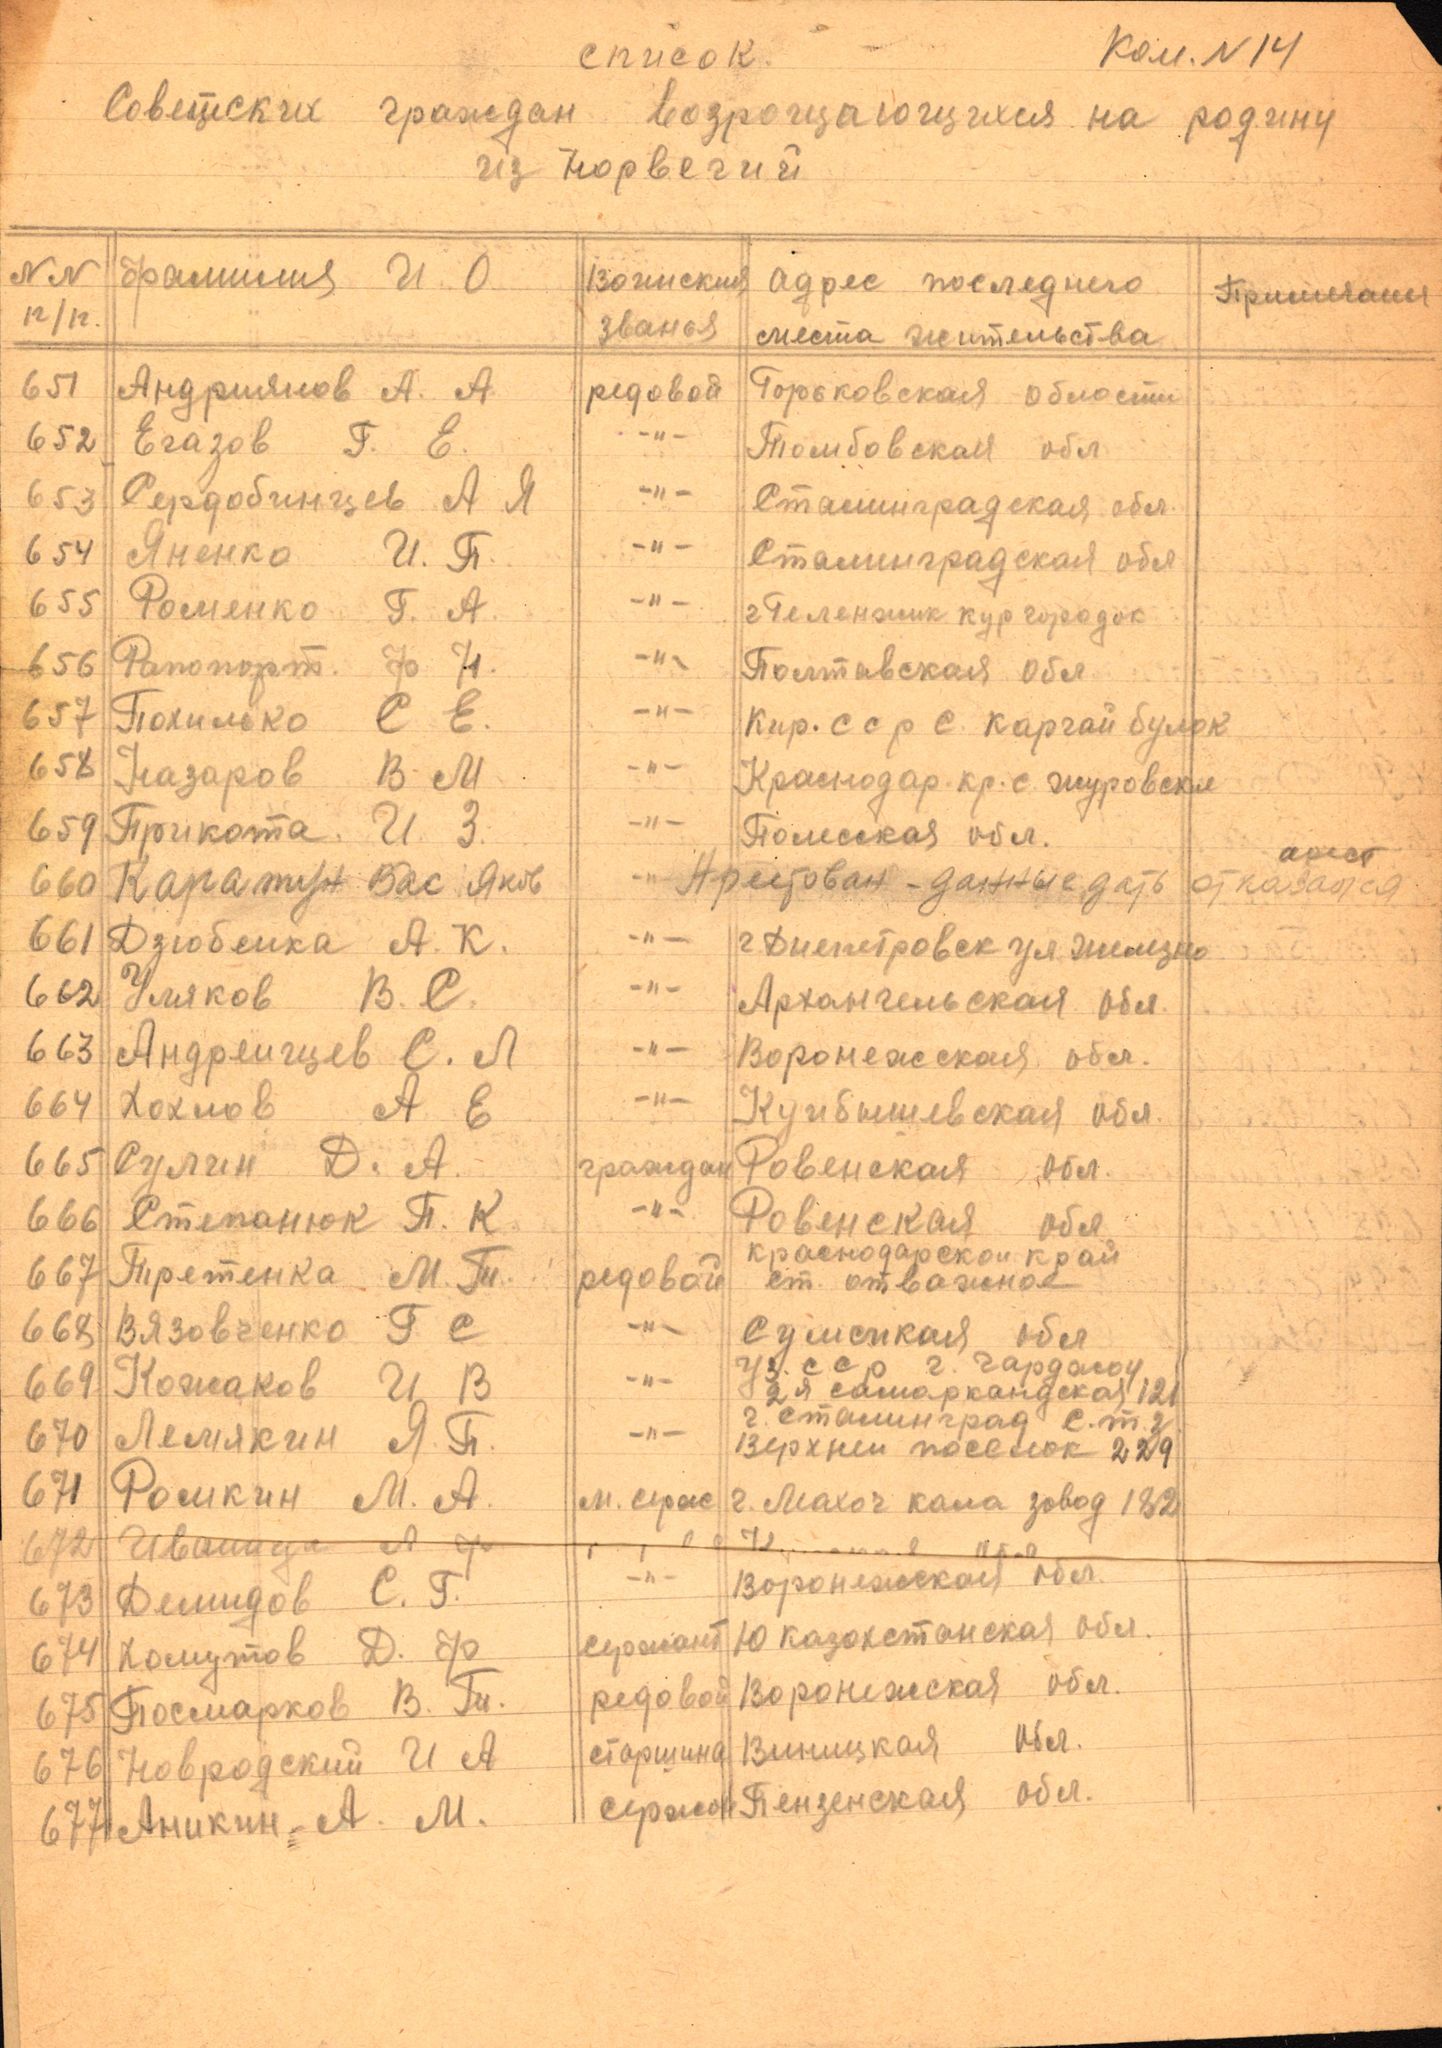 список. Ком. N 14
Советских граждан возрощающихся на родину
из Норвегий
NN п/п. Фамилия И О Воинския званья Адрес последнего места жительства Примечания
651 Андриянов А. А редовой Горьковская области
652 Егазов Г. Е. -"- Томбовская обл
653 Сердобинцев А Я -"- Сталинградская обл.
654 Яненко И. П. -"- Сталинградская обл
655 Роменко Г. А. -"- г Геленжик кур городок
656 Рапопорт. Ф Н. -"- Полтавская обл
657 Похилько С Е. -"- Кир. с с р с. Каргай булок
658 Назаров В М -"- Краснодар. кр. с журовская
659 Прикота. И З. -"- Полесская обл.
арест
660 Каражун Вас Яков -"- Арестован - данные дать отказался
661 Дзюбенка А. К. -"- г Днепетровск ул
662 Уляков В. С. -"- Архангельская обл.
663 Андреищев С. Л -"- Воронежская обл.
664 Хохлов А Е -"- Куйбышевская обл.
665 Сулин Д. А. граждан Ровенская обл.
666 Степанюк П. К -"- Ровенская обл
667 Третенка М. Т. редовой краснодарской край
ст. отважное
668 Вязовченко Г С -"- Сумская обл
669 Кожаков И В -"- Уз. с с р г. Чарджоу
2я самаркандская 121
670 Лемякин Я. П. -"- г. сталинград с. т. з.
Верхнеи поселок 229
671 Ромкин М. А. м. серж г. Махоч кала завод 182
672 Иваница А Ф обл
673 Демидов С. Г. -"- Воронежская обл.
674 Хомутов Д. Ф сержант Ю казохстанская обл.
675 Посмарков В. Т. редовой Воронежская обл.
676 Новродский И А старшина Виницкая обл.
677 Аникин. А. М. сержан Пензенская обл.